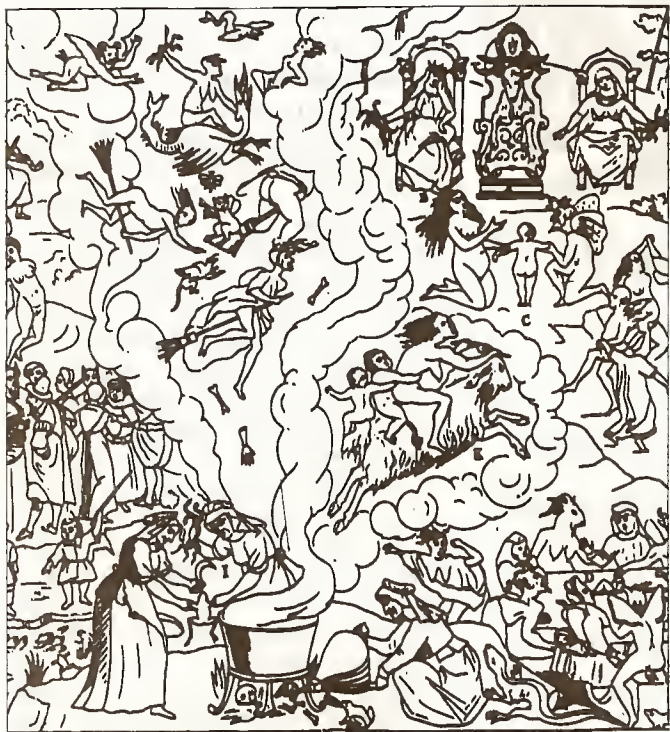 C
E
I